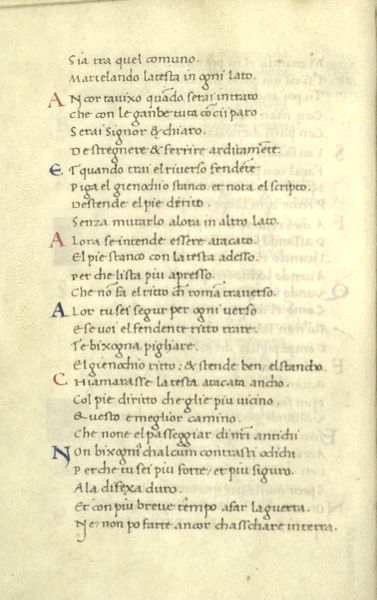 Sia tra quel comuno.
Martelando la testa in ogni lato.
Ancor tavixo quãdo serai intrato
Che con le ganbe tu ta cõcii paro.
Serai Signor & chiaro.
De stregnere & ferrire arditamẽte.
Et quando trai el riverso fendẽte
Piga el gienochio stanco et nota el scripto.
Destende el pie derito.
Senza mutarlo alora in altro lato.
Alora se intende essere atacato.
El pie stanco con la testa adesso.
Per che li sta piu apresso.
Che nõ fa el ritto ch romã traverso.
Alor tu sei segur per ogni verso
E se voi el fendente ritto trare.
Te bixogna pighare.
El gienochio ritto: & stende ben el stancho.
Chiamarasse la testa atacata ancho.
Col pie diritto che glie piu vicino.
Questo e meglior camino.
Che none el passeggiar di nr̃i antichi
Non bixogñ chalcum contrasti o dichi.
Perche tu sei piu forte et piu siguro.
A la difexa duro.
Et con piu breve tempo a far la guerra.
Ne non po farte ancor chasschare in terra.